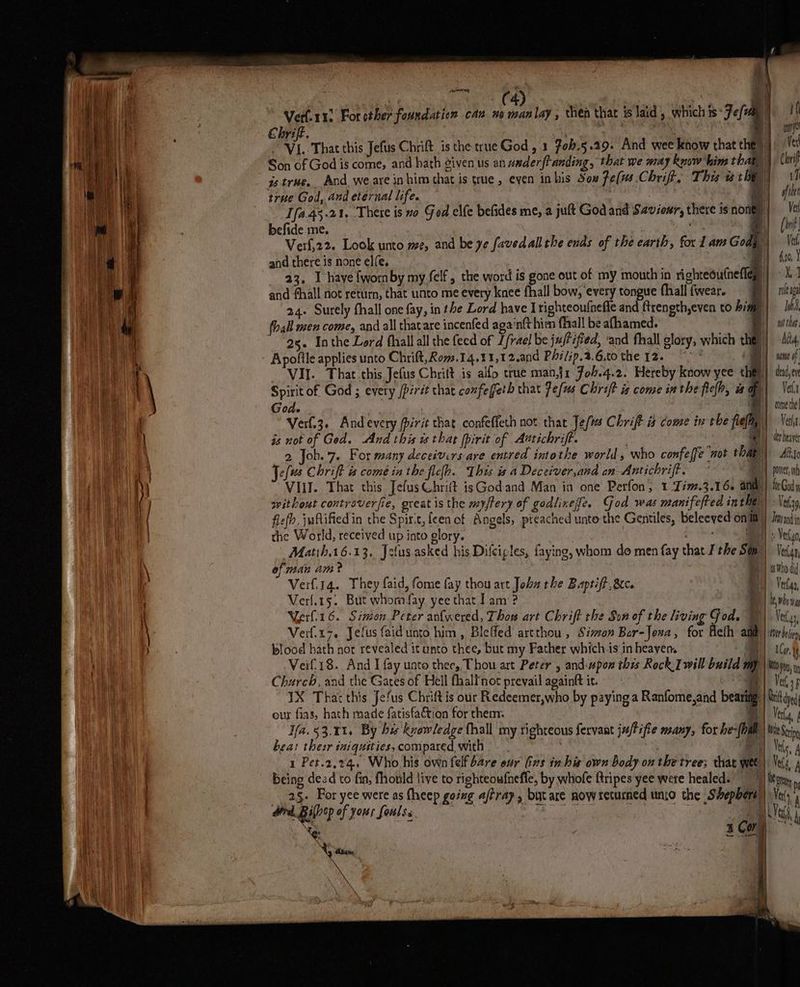 (4)
Vers.11. For other foundation can no man lay, then that is laid, which is Jesus
Christ.
VI. That this Jesus Christ is the true God, 1 Joh.5.20. And wee know that the
Son of God is come, and hath given us an understanding, that we may know him that
is true. And we are in him that is true, even in his Son Jesus Christ. This is the
true God, and eternal life.
Isa.45.21. There is no God else besides me, a just God and Saviour, there is none
beside me.
Vers,22. Look unto me, and be ye saved all the ends of the earth, for I am God,
and there is none else.
23. I have sworn by my self, the word is gone out of my mouth in righteousnesse,
and shall not return, that unto me every knee shall bow, every tongue shall swear.
24. Surely shall one say, in the Lord have I righteousnesse and strength, even to him
shall men come, and all that are incensed against him shall be ashamed.
25. In the Lord shall all the seed of Israel be justified, and shall glory, which the
Apostle applies unto Christ, Rom.14.11,12.and Philip.2.6.to the 12.
VII. That this Jesus Christ is also true man, 1 Joh.4.2. Hereby know yee the
Spirit of God; every spirit that confesseth that Jesus Christ is come in the flesh, is of
God.
Vers.3. And every spirit that confesseth not that Jesus Christ is come in the flesh,
is not of God. And this is that spirit of Antichrist.
2 Joh.7. For many deceivers are entred into the world, who confesse not that
Jesus Christ is come in the flesh. This is a Deceiver, and an Antichrist.
VIII. That this Jesus Christ is God and Man in one Person, 1 Tim.3.16. and
without controversie, great is the mystery of godlinesse. God was manifested in the
flesh, justified in the Spirit, seen of Angels, preached unto the Gentiles, beleeved on in
the World, received up into glory.
Matth.16.13. Jesus asked his Disciples, saying, whom do men say that I the Son
of man am?
Vers.14. They said, some say thou art John the Baptist, &c.
Vers.15. But whom say yee that I am?
Vers.16. Simon Peter answered, Thou art Christ the Son of the living God.
Vers.17. Jesus said unto him, Blessed art thou, Simon Bar-Jona, for flesh and
blood hath not revealed it unto thee, but my Father which is in heaven.
Vers.18. And I say unto thee, Thou art Peter, and upon this Rock I will build my
Church, and the Gates of Hell shall not prevail against it.
IX That this Jesus Christ is our Redeemer, who by paying a Ransome, and bearing
our sins, hath made satisfaction for them.
Isa.53.11. By his knowledge shall my righteous servant justifie many, for he shall
bear their iniquities, compared with
1 Pet.2.24. Who his own self bare our sins in his own body on the tree; that wee
being dead to sin, should live to righteousnesse, by whose stripes yee were healed.
25. For yee were as sheep going astray, but are now returned unto the Shepherd
and Bishop of your souls.
1 Cor